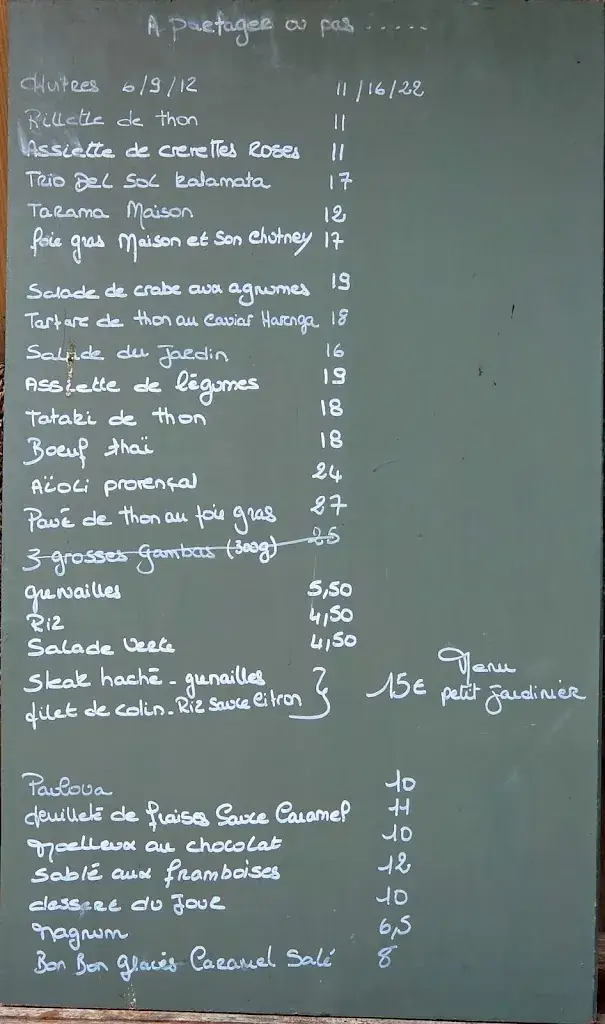 A partager ou pas .....
Huitres 6/9/12 11/16/22
Rillette de thon 11
Assiette de crevettes Roses 11
Trio Del Sol Kalamata 17
Tarama Maison 12
foie gras Maison et son chutney 17
Salade de crabe aux agrumes 19
Tartare de thon au caviar Harenga 18
Salade du Jardin 16
Assiette de légumes 19
Tataki de thon 18
Boeuf thaï 18
Aïoli provençal 24
Pavé de thon au foie gras 27
3 grosses gambas (300g) 25
grenailles 5,50
Riz 4,50
Salade verte 4,50
Steak haché - grenailles
filet de colin - Riz sauce citron } 15€ Menu petit jardinier
Pavlova 10
feuilleté de fraises Sauce Caramel 11
Moelleux au chocolat 10
Sablé aux framboises 12
dessert du Jour 10
Magnum 6,5
Bon Bon glacés Caramel Salé 8